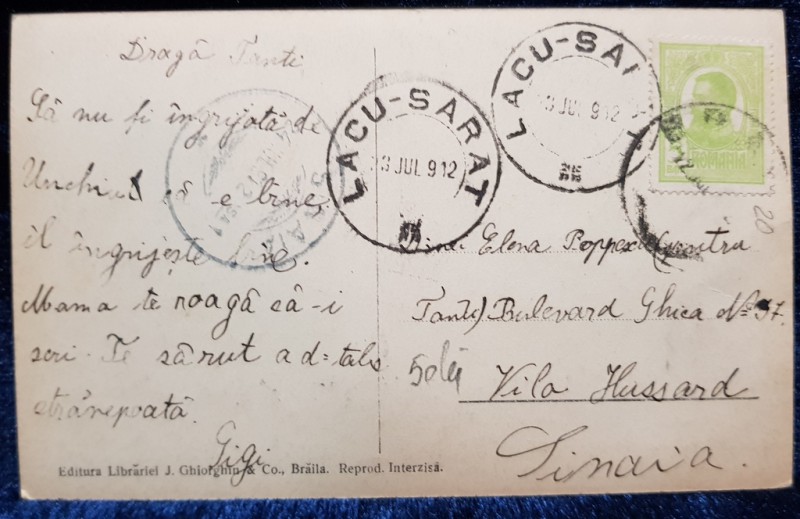 Dragă Tanti
Să nu fi îngrijată de
Unchiul că-e bine,
îl îngrijește bine.
Mama te roagă să-i
scri. Te sărut a d=tale
strănepoată
Gigi
Editura Librăriei J. Ghiorghiu & Co., Brăila. Reprod. Interzisă.
LACU-SARAT
JUL 912
LACU-SARAT
3 JUL 912
ROMANIA
20
Elena
Tanti) Bulevard Ghica No 37.
50 lei
Vila Hussard
Sinaia.